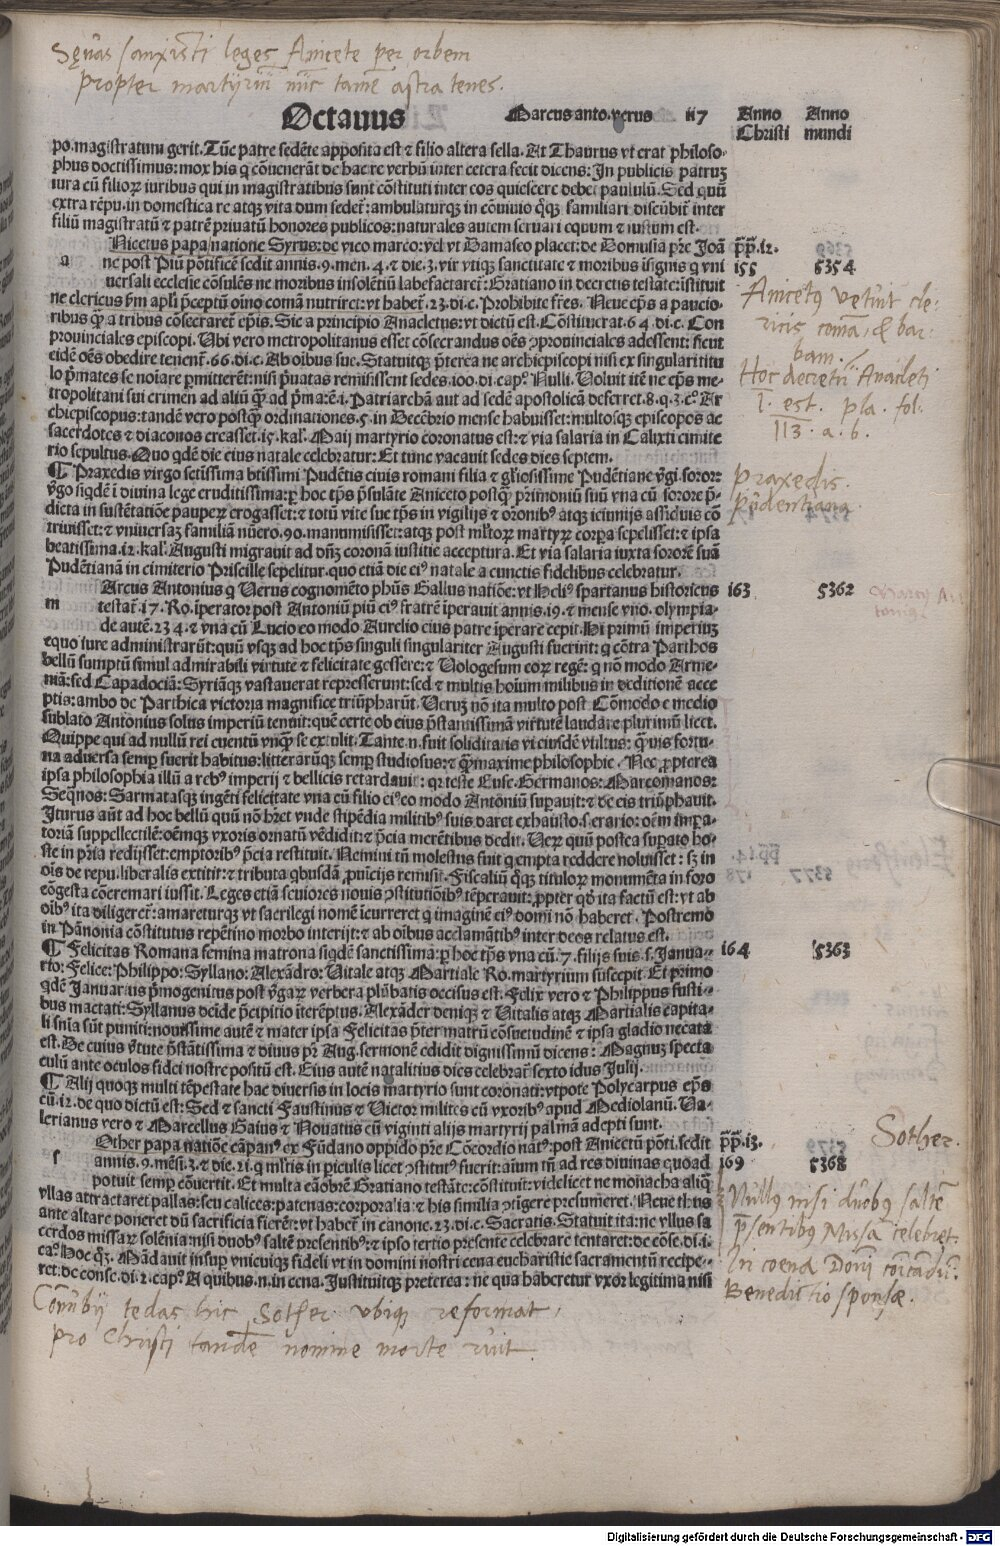 Sęvas sanxisti leges Anicete per orbem
Propter martyriū nūc tamē astra tenes.
Octauus Marcus anto. verus 117 Anno Anno
Christi mundi
po.magistratum gerit. Tūc patre sedēte apposita est ⁊ filio altera sella. At Thaurus vt erat philoso-
phus doctissimus: mox his q̄ cōuenerāt de hac re verbū inter cetera fecit dicens: In publicis patruꝫ
iura cū filioꝝ iuribus qui in magistratibus sunt cōstituti inter eos quiescere debēt paululū. Sed quū
extra rēpu. in domestica re atqꝫ vita dum sedet̄: ambulaturqꝫ in cōuiuio q̄qꝫ familiari discūbit̄ inter
filiū magistratū ⁊ patrē priuatū honores publicos: naturales autem seruari equum ⁊ iustum est.
Nicetus papa natione Syrus: de vico marco: vel vt Damaso placet: de Domusia pr̄e Joā p̄p̄.12.
a ne post Piū pōtificē sedit annis.9.men.4.⁊ die.3. vir vtiqꝫ sanctitate ⁊ moribus īsignis q vni 155 5354
uersali ecclesie cōsulēs ne moribus insolētiū labefactaret̄: Gratiano in decretis testāte: īstituit
ne clericus ꝟm apl̄i p̄ceptū oīno comā nutriret: vt habet̄.23.di.c. Prohibite fr̄es. Neue ep̄s a paucio-
ribus q̄ȝ a tribus cōsecraret̄ ep̄is. Sic a principio Anacletus: vt dictū est. Cōstituerat.64.di.c. Con
prouinciales episcopi. Ubi vero metropolitanus esset cōsecrandus oēs ꝓuinciales adessent: sicut
eidē oēs obedire tenent̄.66.di.c. Ab oibus suę. Statuitqꝫ p̄terea ne archiepiscopi nisi ex singulari titu
lo p̄mates se noīare ꝑmitterēt: nisi p̄uatas remisissent sedes.100.di.cap.º Nulli. Voluit itē ne ep̄s me-
tropolitani sui crimen ad aliū q̄ȝ ad p̄marē.i. Patriarchā aut ad sedē apostolicā deferret.8.q.3.cº. Ar
chiepiscopus: tandē vero postq̄ȝ ordinationes.5. in Decēbrio mense habuisset: multosqꝫ episcopos ac
sacerdotes ⁊ diaconos creasset.15.kal. Maij martyrio coronatus est: ⁊ via salaria in Calixti cimite
rio sepultus. Quo qdē die eius natale celebratur: Et tunc vacauit sedes dies septem.
Anicetꝰ vetuit cle-
ricis comā, & bar-
bam.
Hoc decretū Anacleti
I. est. pla. fol.
113. a. b.
¶ Praxedis virgo sctissima btissimi Pudētis ciuis romani filia ⁊ gl̄iosissime Pudētiane ꝟgi. soror:
ꝟgo siqdē i diuina lege eruditissima: ꝑ hoc tp̄s p̄sulāte Aniceto postq̄ȝ p̄rimoniū suū vna cū sorore p̄-
dicta in sustētatiōe pauperꝫ erogasset: ⁊ totū vite sue tp̄s in vigilijs ⁊ orōnibꝰ atqꝫ ieiunijs assiduis cō
triuisset: ⁊ vniuersaꝫ familiā nūero.90.manumisisset: atqꝫ post mltoꝝ martyꝝ corpa sepelisset: ⁊ ipsa
beatissima.12.kal. Augusti migrauit ad dn̄ꝫ coronā iustitie acceptura. Et via salaria iuxta sororē suā
Pudētianā in cimiterio Priscille sepelitur. quo etiā die eiꝰ natale a cunctis fidelibus celebratur.
Praxedis.
Pudentiana
Arcus Antonius q Uerus cognomēto phūs Gallus natiōe: vt Heliꝰ spartanus historicus 163 5362
m testat̄.17.Ro. īperator post Antoniū piū eiꝰ fratrē īperauit annis.19.⁊ mense vno. olympia-
de autē.234.⁊ vna cū Lucio eo modo Aurelio eius patre īperare cepit. Hi primū imperiuꝫ
equo iure administrarūt: quū vsqꝫ ad hoc tp̄s singuli singulariter Augusti fuerint: q cōtra Parthos
bellū sumptū simul admirabili virtute ⁊ felicitate gessere: ⁊ Uologesum eoꝝ regē: q nō modo Arme-
niā: sed Capadociā: Syriāqꝫ vastauerat represserunt: sed ⁊ multis hoīum milibus in deditionē acce
ptis: ambo de Parthica victoria magnifice triūpharūt. Uerꝫ nō ita multo post Cōmodo e medio
sublato Antonius solus imperiū tenuit: quē certe ob eius p̄stantissimā virtutē laudare plurimū licet.
Quippe qui ad nullū rei euentū vnq̄ȝ se extulit. Tante.n.fuit soliditatis vt eiusdē vultus: q̄uis fortu-
na aduersa semꝑ fuerit habitus: litterarūqꝫ semꝑ studiosus: ⁊ q̄ȝmaxime philosophie. Nec ꝓpterea
ipsa philosophia illū a rebꝰ imperij ⁊ bellicis retardauit: qr teste Euse. Germanos: Marcomanos:
Seqnos: Sarmatasqꝫ ingēti felicitate vna cū filio eiꝰ eo modo Antoniū suꝑauit: ⁊ de eis triūphauit.
Iturus aūt ad hoc bellū quū nō hr̄et vnde stipēdia militibꝰ suis daret exhausto.s.erario: oēm impa-
toriā suppellectilē: oēmqꝫ vxoris ornatū vēdidit: ⁊ p̄cia merētibus dedit. Uerꝫ quū postea suꝑato ho-
ste in pr̄ia redijsset: emptoribꝰ p̄cia restituit. Nemini tū molestus fuit q empta reddere noluisset: sꝫ in
oīs de repu. liberalis extitit: ⁊ tributa qbusdā ꝓuicijs remisit. Fiscaliū q̄qꝫ tituloꝝ monumēta in foro
cōgesta cōcremari iussit. Leges etiā seuiores nouis ꝯstitutiōibꝰ tēperauit: ꝓpter qd̄ ita factū est: vt ab
oībꝰ ita diligeret̄: amareturqꝫ vt sacrilegi nomē īcurreret q imaginē eiꝰ domi nō haberet. Postremo
in Pānonia cōstitutus repētino morbo interijt: ⁊ ab oībus acclamātibꝰ inter deos relatus est.
¶ Felicitas Romana femina matrona siqdē sanctissima: ꝑ hoc tp̄s vna cū.7.filijs suis.s. Janua- 164 5363
rio: Felice: Philippo: Syllano: Alexādro: Uitale atqꝫ Martiale Ro. martyrium suscepit. Et primo
qdē Januarius p̄mogenitus post ꝟgaꝝ verbera plūbatis occisus est. Felix vero ⁊ Philippus fusti-
bus mactati: Syllanus deīde p̄cipitio īterēptus. Alexāder deniqꝫ ⁊ Uitalis atqꝫ Martialis capita-
li sn̄ia sūt puniti: nouissime autē ⁊ mater ipsa Felicitas p̄ter matrū cōsuetudinē ⁊ ipsa gladio necata
est. De cuius ꝟtute p̄stātissima ⁊ diuus pr̄ Aug. sermonē edidit dignissimū dicens: Magnuꝫ specta
culū ante oculos fidei nostre positū est. Eius autē natalitius dies celebrat̄ sexto idus Julij.
¶ Alij quoqꝫ multi tēpestate hac diuersis in locis martyrio sunt coronati: vtpote Polycarpus ep̄s
cū.12. de quo dictū est: Sed ⁊ sancti Faustinus ⁊ Uictor milites cū vxoribꝰ apud Mediolanū. Ua-
lerianus vero ⁊ Marcellus Gaius ⁊ Nouatus cū viginti alijs martyrij palmā adepti sunt.
Other papa natiōe cāpanꝰ ex Fūdano oppido pr̄e Cōcordio natꝰ: post Anicetū pōti. sedit p̄p̄.13. Sother.
s annis.9.mēsi.3.⁊ die.21. q mltis in piculis licet ꝯstitutꝰ fuerit: aīum tn̄ ad res diuinas quoad 169 5368
potuit semꝑ cōuertit. Et multa eāobrē Gratiano testāte: cōstituit: videlicet ne monacha aliq̄
vllas attractaret pallas: seu calices: patenas: corporalia: ⁊ his similia ꝯtigere presumeret. Neue thus
ante altare poneret dū sacrificia fierēt: vt habet̄ in canone.23.di.c. Sacratis. Statuit ita: ne vllus sa
cerdos missaꝝ solēnia: nisi duobꝰ saltē presentibꝰ: ⁊ ipso tertio presente celebrare tentaret: de cōse.di.1.
ca.º Hoc q̄ꝫ. Mādauit insuꝑ vnicuiqꝫ fideli vt in domini nostri cena eucharistie sacramentū recipe-
ret: de conse.di.2.cap.º A quibus.n.in cena. Instituitqꝫ preterea: ne qua haberetur vxor legitima nisi
Nullꝰ nisi duobꝰ saltē
p̄sentibꝰ Missā celebret.
In coena Domī
Benedictio sponsæ.
Connubij tedas hic Sother ubique reformat,
Pro Christi tandē nomine morte ruit.
Digitalisierung gefördert durch die Deutsche Forschungsgemeinschaft - DFG